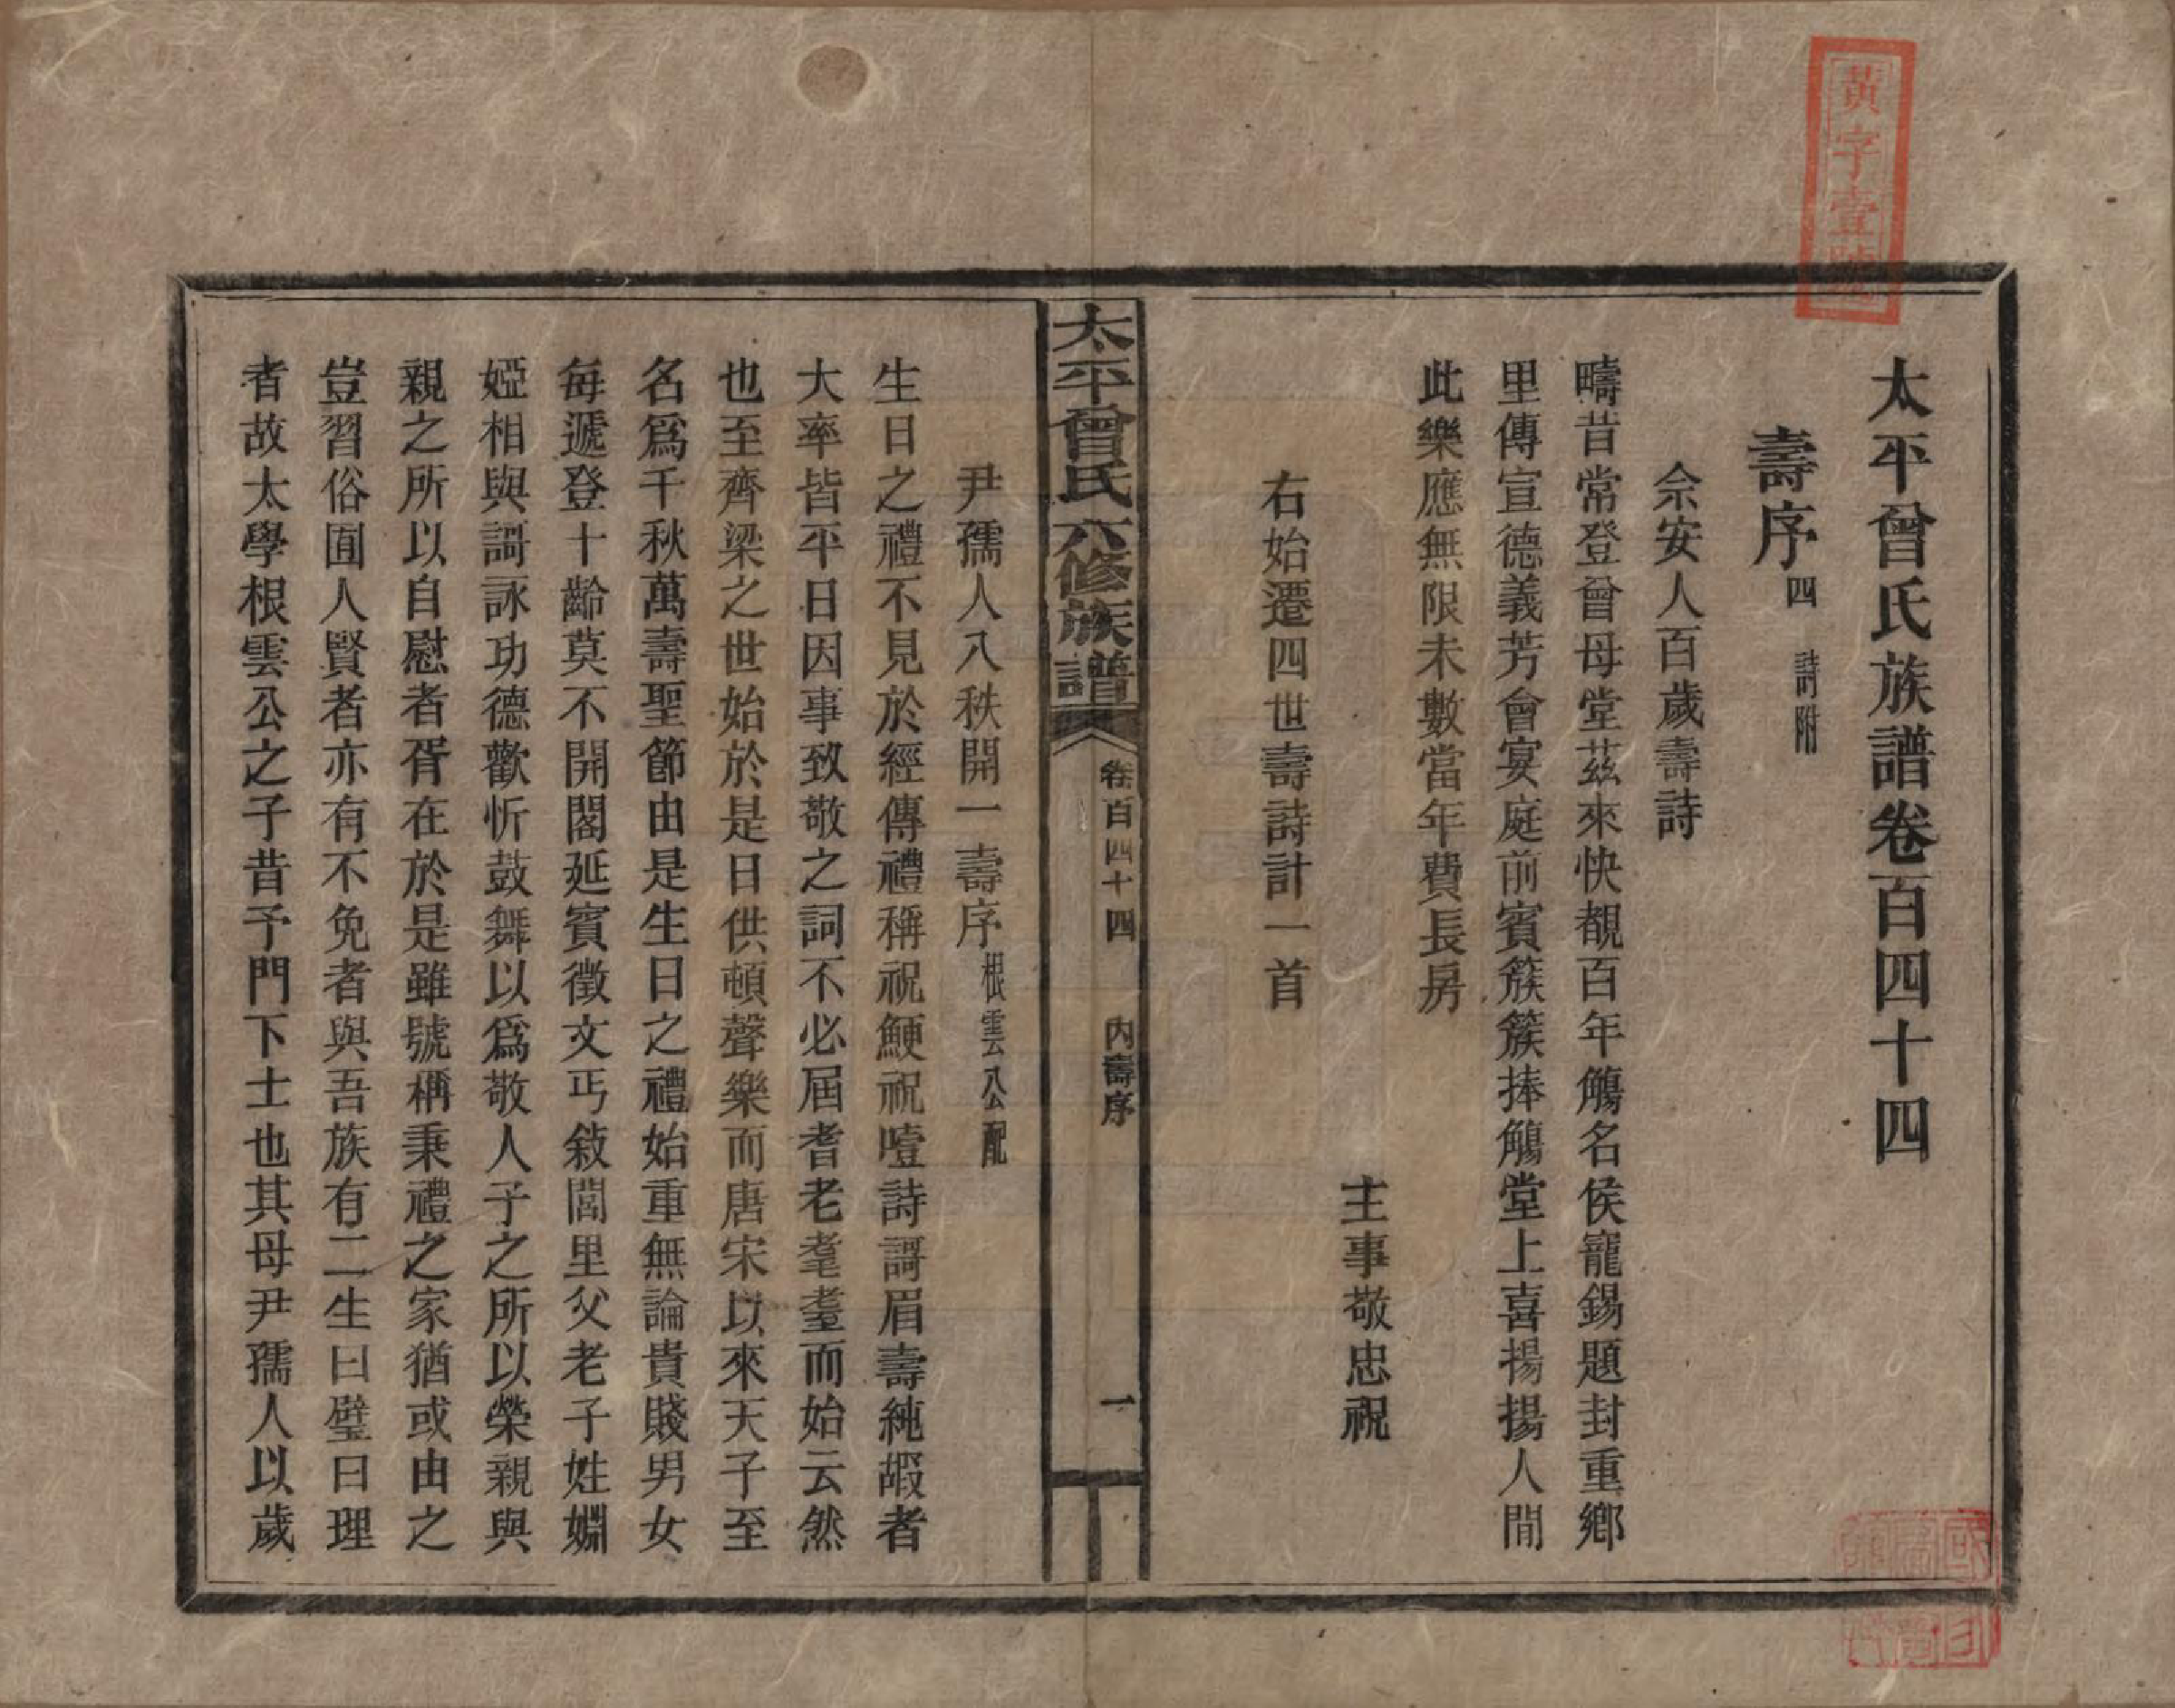 黃字壹號
太平曾氏族譜卷百四十四
壽序四 詩附
佘安人百歲壽詩
疇昔常登曾母堂茲來快覩百年觴名侯寵錫題封重鄉
里傳宣德義芳會宴庭前賓簇簇捧觴堂上喜揚揚人間
此樂應無限未數當年費長房
主事敬忠祝
右始遷四世壽詩計一首
太平曾氏六修族譜 卷百四十四 內壽序 一
尹孺人八秩開一壽序根雲公配
生日之禮不見於經傳禮稱祝鯁祝噎詩謌眉壽純嘏者
大率皆平日因事致敬之詞不必屆耆老耄耋而始云然
也至齊梁之世始於是日供頓聲樂而唐宋以來天子至
名爲千秋萬壽聖節由是生日之禮始重無論貴賤男女
每遞登十齡莫不開閣延賓徵文丐敘閭里父老子姓婣
婭相與謌詠功德歡忻鼓舞以爲敬人子之所以榮親與
親之所以自慰者胥在於是雖號稱秉禮之家猶或由之
豈習俗囿人賢者亦有不免者與吾族有二生曰璧曰理
者故太學根雲公之子昔予門下士也其母尹孺人以歲